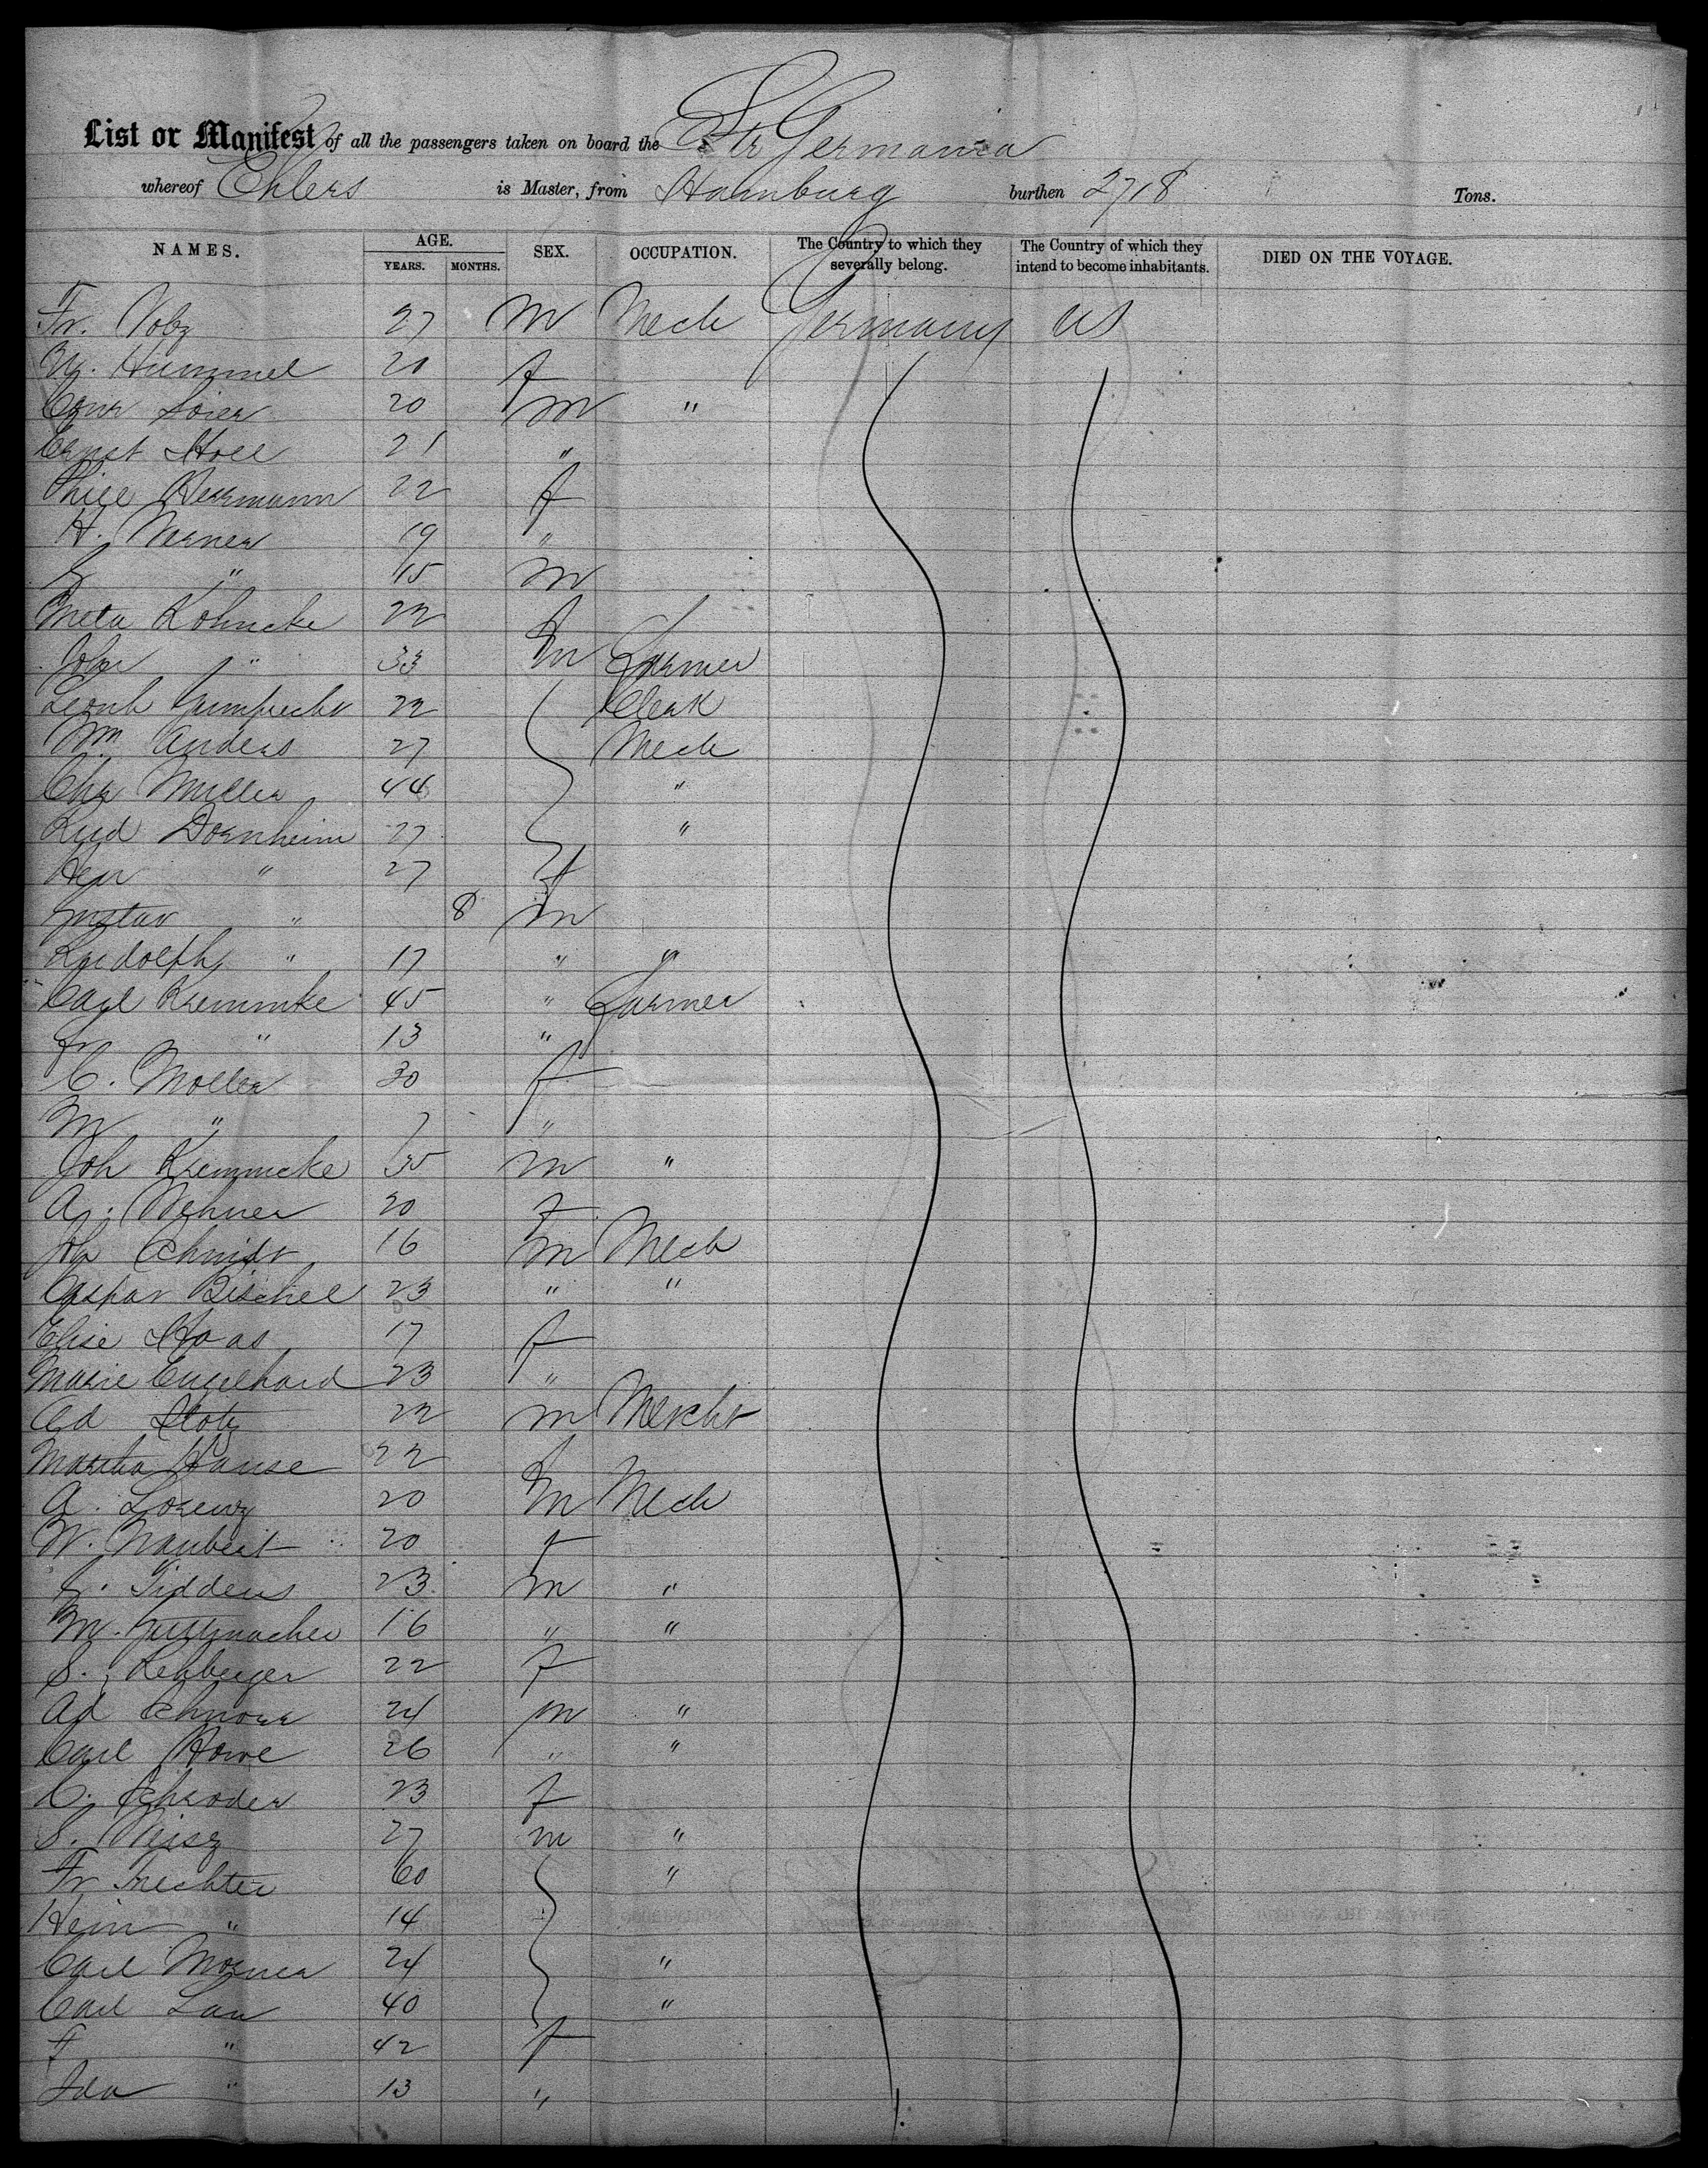 List or Manifest of all the passengers taken on board the Str Germania
whereof Ehlers is Master, from Hamburg burthen 2718 Tons.
NAMES. AGE. YEARS. MONTHS. SEX. OCCUPATION. The Country to which they severally belong. The Country of which they intend to become inhabitants. DIED ON THE VOYAGE.
Fr. Volz 27 M Mech Germany US
Hummel 20 f
20 m "
Ernst Holl 21 "
Herrmann 22 f
H. Werner 19 "
" 15 m
Meta Kohncke 22 f
John " 33 m Farmer
Leonh Gumprecht 22 Clerk
Wm Anders 27 Mech
Chr Muller 44 "
Rud Dornheim 27 "
Henr " 27 f
Gustav " 8 m
Rudolph " 17 " "
Carl Kremmke 45 " Farmer
Fr " 13 "
C. Moller 30 f
M " 7 "
Joh Kremmcke 35 m "
A. Wehner 20 f
Joh Schmidt 16 m Mech
Caspar Bischel 23 " "
Elise Haas 17 f
Marie Engelhard 23 "
Ed Stotz 22 m Mercht
Martha Hause 22 f
A. Lorenz 20 m Mech
W. Naubert 20 f
Tiddens 23 m "
M. Guttmacher 16 " "
S. Rehberger 22 f
Ad Schnorr 24 m "
Carl Howe 26 " "
C. Schroder 23 f
S. 27 m "
Fr Trechter 60 "
Hein " 14
Carl Morner 24 "
Carl Lau 40 "
F " 42 f
Ida " 13 "